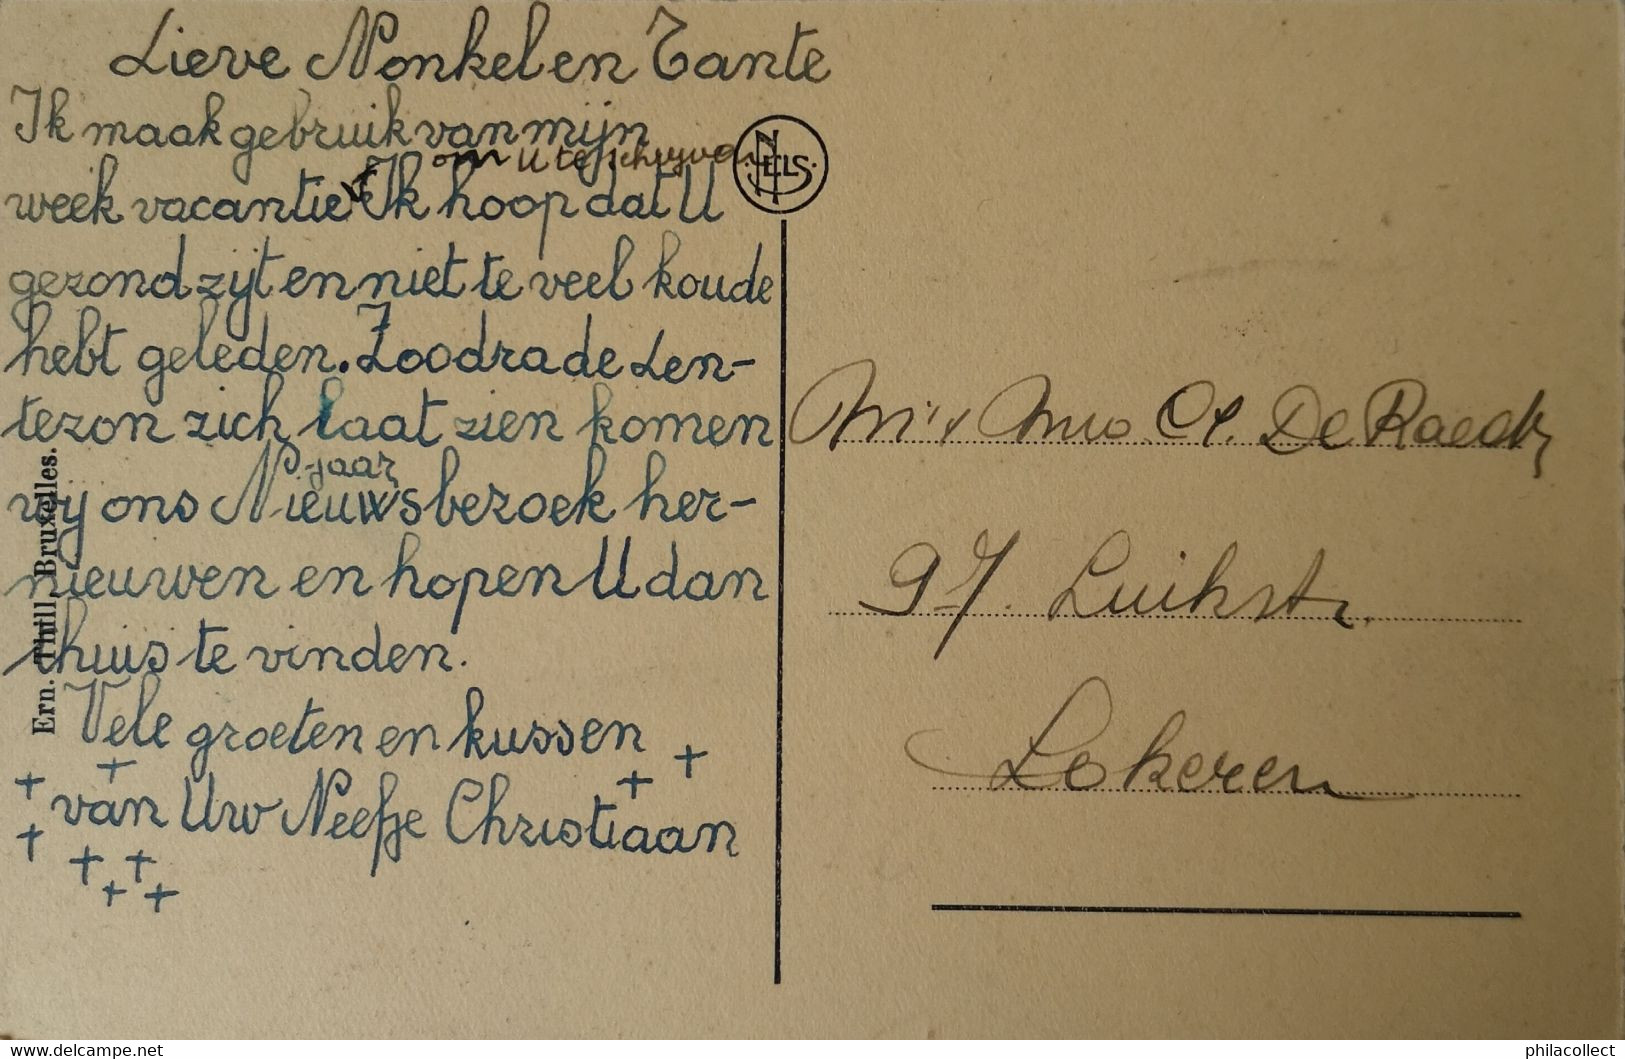 Lieve Nonkel en Tante
Ik maak gebruik van mijn
om U te schrijven
week vacantie Ik hoop dat U
gezond zijt en niet te veel koude
hebt geleden. Zoodra de Len-
tezon zich laat zien komen
jaar
wij ons Nieuwsbezoek her-
nieuwen en hopen U dan
thuis te vinden.
Vele groeten en kussen
van Uw Neefje Christiaan
Ern. Thill, Bruxelles.
NELS
De Raedt
97. Luikstr.
Lokeren
philacollect